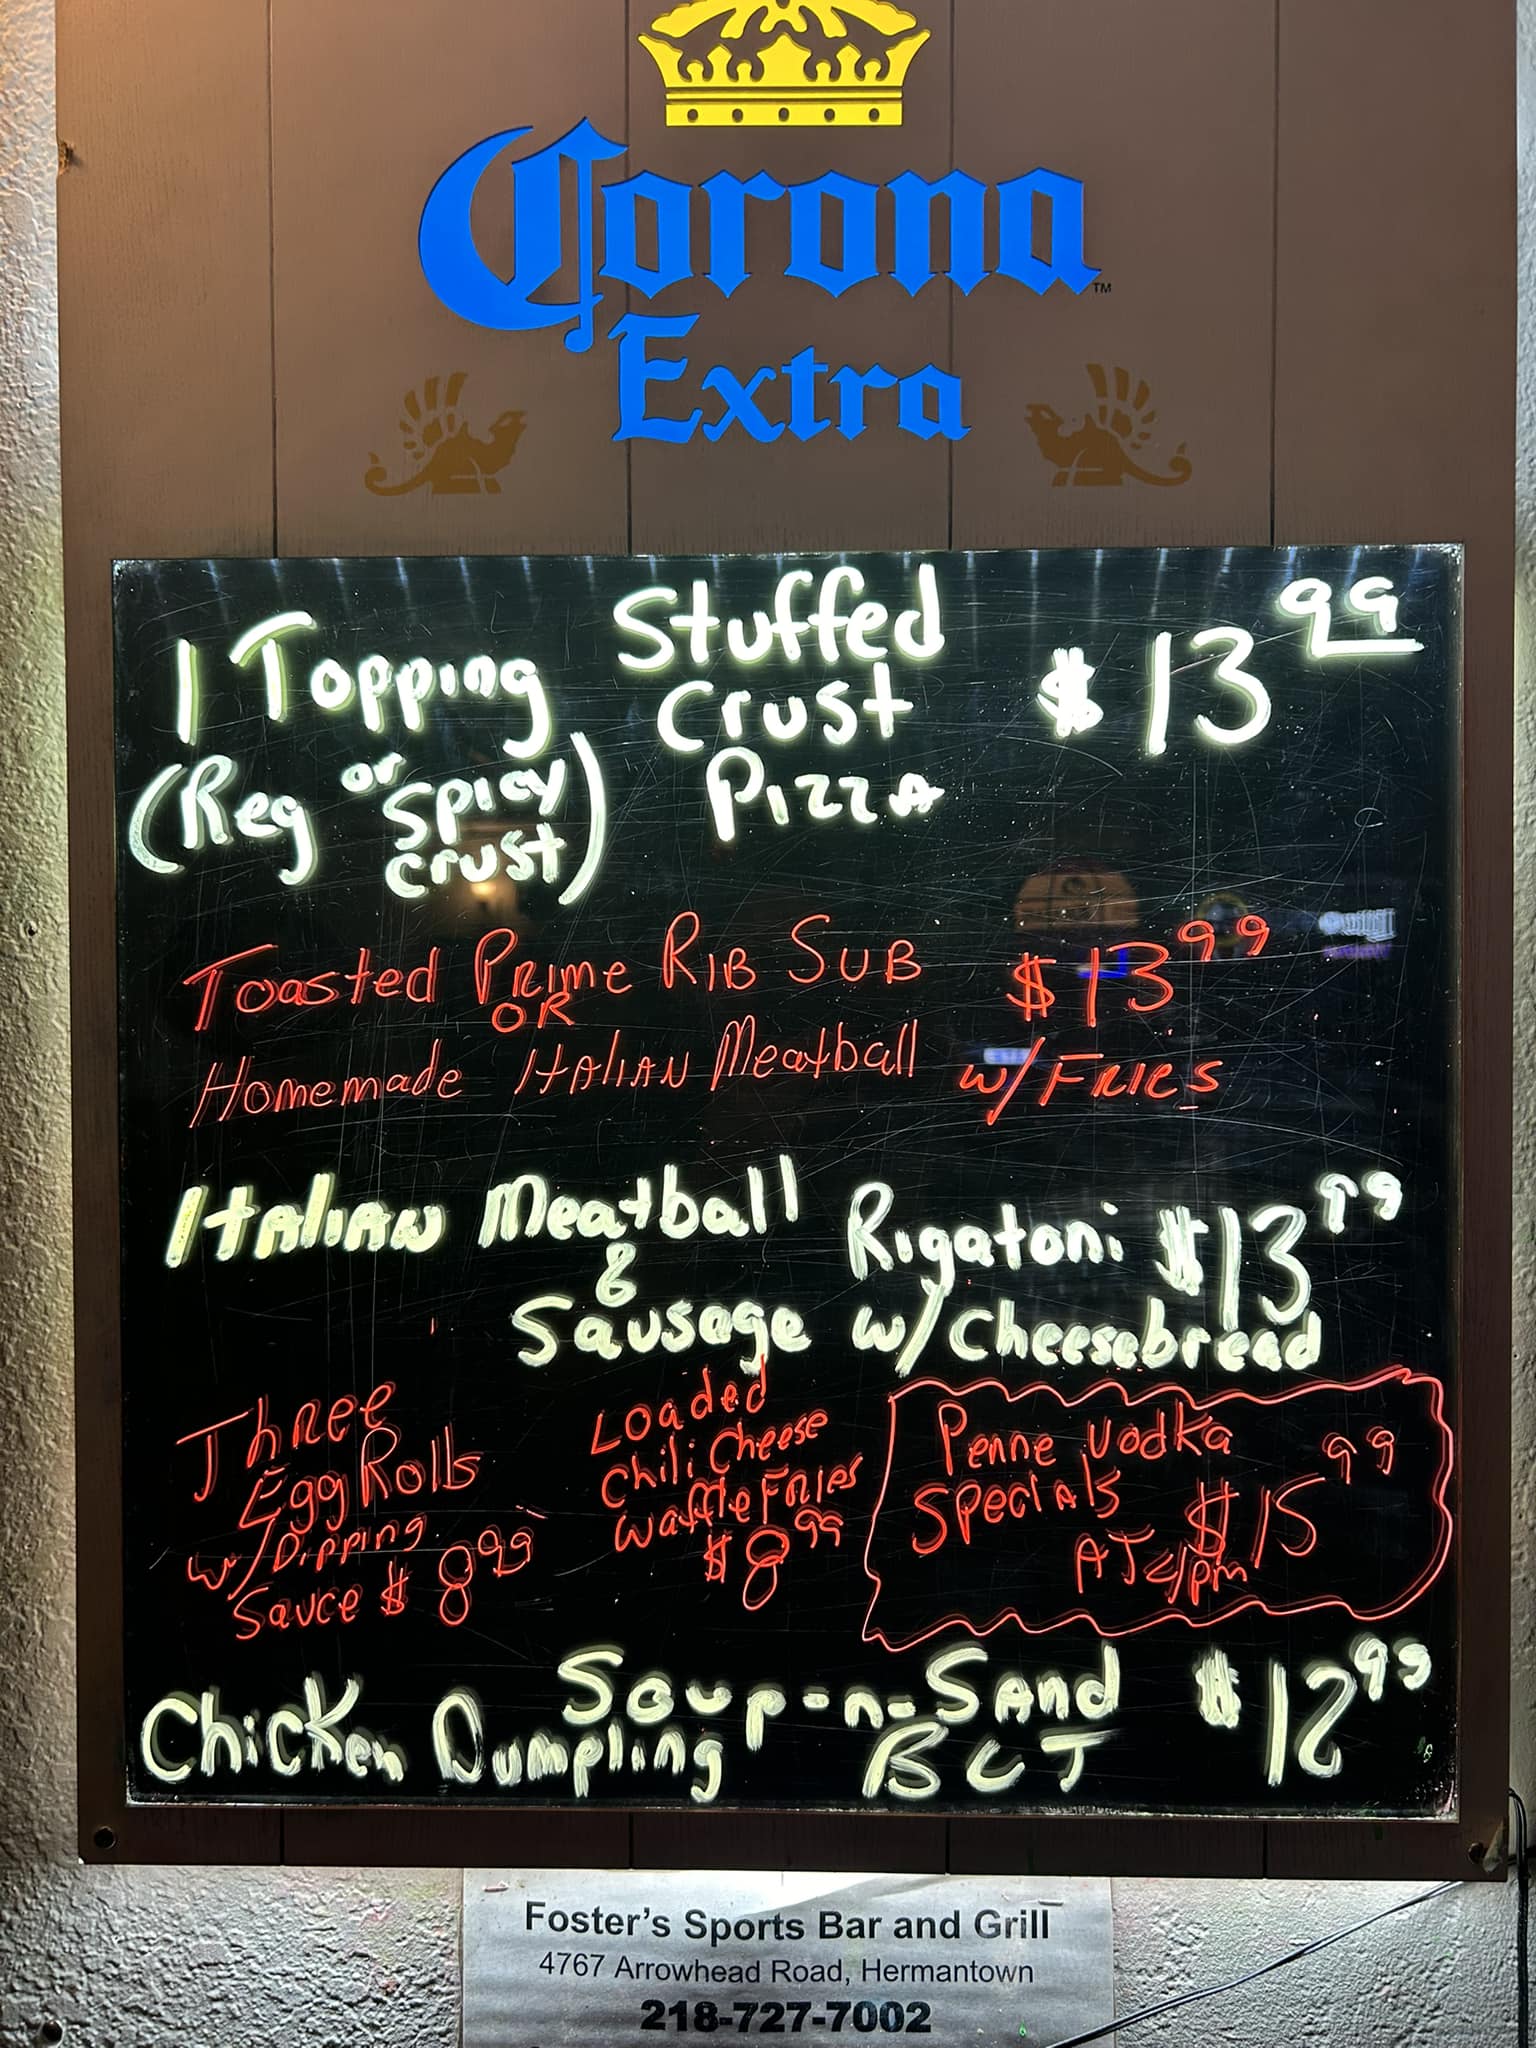 Corona
Extra
TM
1 Topping Stuffed Crust Pizza $13 99
(Reg or Spicy Crust)
Toasted Prime Rib Sub $13 99
OR
Homemade Italian Meatball w/ Fries
Italian Meatball Rigatoni $13 99
& Sausage w/ Cheesebread
Three
Egg Rolls
w/ Dipping
Sauce $8 99
Loaded
Chili Cheese
Waffle Fries
$8 99
Penne Vodka
Specials $15 99
AT
Soup-n-Sand $12 99
Chicken Dumpling BCT
Foster's Sports Bar and Grill
4767 Arrowhead Road, Hermantown
218-727-7002